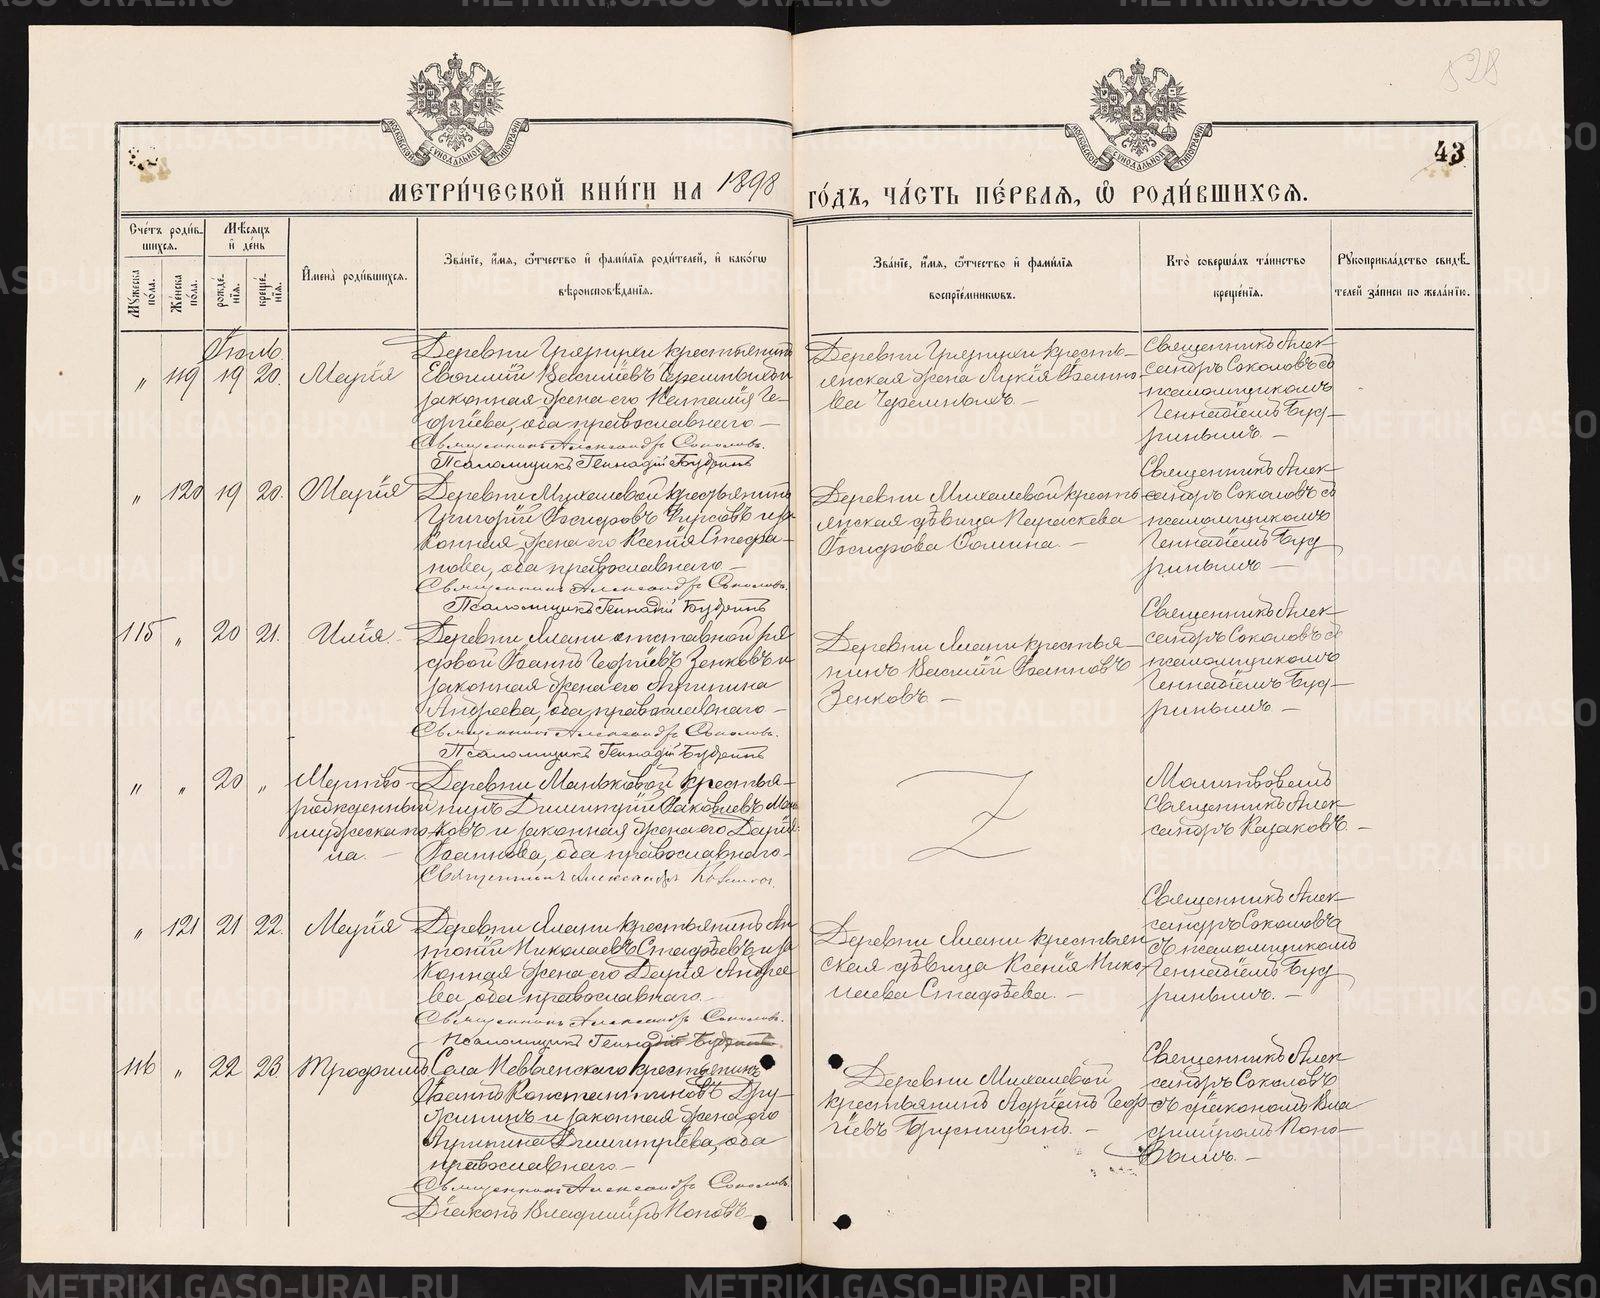 528
43
МОСКОВСКОЙ СѴНОДАЛЬНОЙ ТИПОГРАФІИ
МОСКОВСКОЙ СѴНОДАЛЬНОЙ ТИПОГРАФІИ
МЕТРИ́ЧЕСКОЙ КНИ́ГИ НА 1898 ГО́ДЪ, ЧА́СТЬ ПЕ́РВАѦ, Ѡ҆ РОДИ́ВШИХСѦ.
Сче́тъ роди́в-
шихсѧ.
Мѣ́сѧцъ
и҆ де́нь
Мꙋ́жеска
по́ла.
Же́нска
по́ла.
рожде́-
нїѧ.
креще́-
нїѧ.
И҆мена̀ роди́вшихсѧ.
Зва́нїе, и҆́мѧ, ѻ҆́тчество и҆ фами́лїѧ роди́телей, и҆ како́гѡ
вѣроисповѣ́данїѧ.
Зва́нїе, и҆́мѧ, ѻ҆́тчество и҆ фами́лїѧ
воспрїе́мникѡвъ.
Кто̀ соверша́лъ та́инство
креще́нїѧ.
Рꙋкоприкла́дство свидѣ́-
телей за́писи по жела́нїю.
Іюль.
„ 119 19 20. Марія
Деревни Грязнухи крестьянинъ
Евѳимій Василіевъ Черемныхъ и
законная жена его Наталія Ге-
оргіева, оба православнаго. –
Священникъ Александръ Соколовъ.
Псаломщикъ Геннадій Будринъ
Деревни Грязнухи кресть-
янская жена Лукія Іванно-
ва Черемныхъ. –
Священникъ Алек-
сандръ Соколовъ съ
псаломщикомъ
Геннадіемъ Буд-
ринымъ. –
„ 120 19 20. Марія
Деревни Михалевой крестьянинъ
Григорій Іосифовъ Фирсовъ и за
конная жена его Ксенія Стефа-
нова, оба православнаго –
Священникъ Александръ Соколовъ.
Псаломщикъ Геннадій Будринъ
Деревни Михалевой кресть-
янская дѣвица Параскева
Іосифова Ѳомина. –
Священникъ Алек-
сандръ Соколовъ съ
псаломщикомъ
Геннадіемъ Буд
ринымъ –
115 „ 20 21. Илія –
Деревни Ялани отставной ря
довой Іоаннъ Георгіевъ Зенковъ и
законная жена его Агрипина
Андреева, оба православнаго –
Священникъ Александръ Соколовъ.
Псаломщикъ Геннадій Будринъ
Деревни Ялани крестья-
нинъ Василій Іоанновъ
Зенковъ –
Священникъ Алек-
сандръ Соколовъ съ
псаломщикомъ
Геннадіемъ Буд-
ринымъ –
„ „ 20 „ Мертво-
рожденный
мужеска по
ла. –
Деревни Маньковой крестья-
нинъ Димитрій Іаковлевъ Мань
ковъ и законная жена его Дарія
Іоаннова, оба православнаго –
Священникъ Александръ Казаковъ.
Z
Молитвовалъ
Священникъ Алек-
сандръ Казаковъ. –
„ 121 21 22. Марія
Деревни Ялани крестьянинъ Ан-
тоній Николаевъ Стафѣевъ и за
конная жена его Дарія Андрее
ва, оба православнаго. –
Священникъ Александръ Соколовъ.
Псаломщикъ Геннадій Будринъ
Деревни Ялани крестьян
ская дѣвица Ксенія Нико
лаева Стафѣева. –
Священникъ Алек-
сандръ Соколовъ
съ псаломщикомъ
Геннадіемъ Буд
ринымъ. –
116 „ 22 23. Трофимъ
Села Невьянскаго крестьянинъ
Іоаннъ Константиновъ Дру-
жининъ и законная жена его
Агрипина Димитріева, оба
православнаго –
Священникъ Александръ Соколовъ.
Діаконъ Владиміръ Поповъ
Деревни Михалевой
крестьянинъ Адріанъ Геор
гіевъ Брусницынъ. –
Священникъ Алек-
сандръ Соколовъ
съ діакономъ Вла
диміромъ Попо-
вымъ. –
METRIKI.GASO-URAL.RU